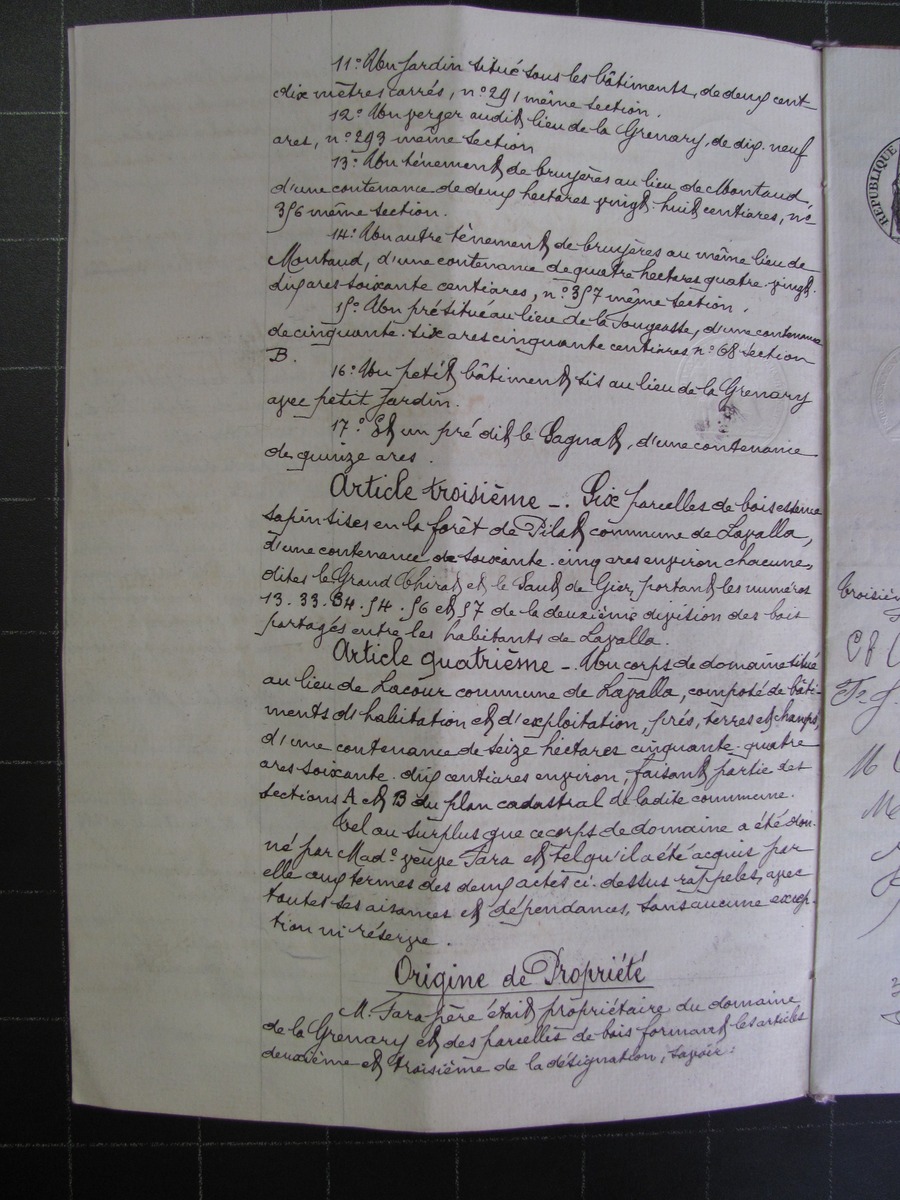 11° Un jardin situé sous les bâtiments, de deux cent
dix mètres carrés, n° 291 même section.
12° Un verger audit lieu de la Grenary, de dix-neuf
ares, n° 293 même section
13° Un tènement de bruyères au lieu de Montaud,
d'une contenance de deux hectares vingt-huit centiares, n°
356 même section.
14° Un autre tènement de bruyères au même lieu de
Montaud, d'une contenance de quatre hectares quatre-vingt-
dix ares soixante centiares, n° 357 même section.
15° Un pré situé au lieu de la , d'une contenance
de cinquante-six ares cinquante centiares n° 68 section
B.
16° Un petit bâtiment sis au lieu de la Grenary
avec petit jardin.
17° Et un pré dit le Sagnat, d'une contenance
de quinze ares.
Article troisième -. Six parcelles de bois essence
sapin sises en la forêt de Pilat commune de Lavalla,
d'une contenance de soixante-cinq ares environ chacune,
dites le Grand Thirat et le Saut de Gier, portant les numéros
13. 33. 34. 54. 56 et 57 de la deuxième division des bois
partagés entre les habitants de Lavalla.
Article quatrième -. Un corps de domaine situé
au lieu de Lacour commune de Lavalla, composé de bâti-
ments d'habitation et d'exploitation, prés, terres et champs
d'une contenance de seize hectares cinquante-quatre
ares soixante-dix centiares environ, faisant partie des
sections A et B du plan cadastral de ladite commune.
Tel au surplus que ce corps de domaine a été don-
né par Mad° veuve Fara et tel qu'il a été acquis par
elle aux termes des deux actes ci-dessus rappelés, avec
toutes ses aisances et dépendances, sans aucune excep-
tion ni réserve.
Origine de Propriété
M. Fara père était propriétaire du domaine
de la Grenary et des parcelles de bois formant les articles
deuxième et troisième de la désignation, savoir:
REPUBLIQUE